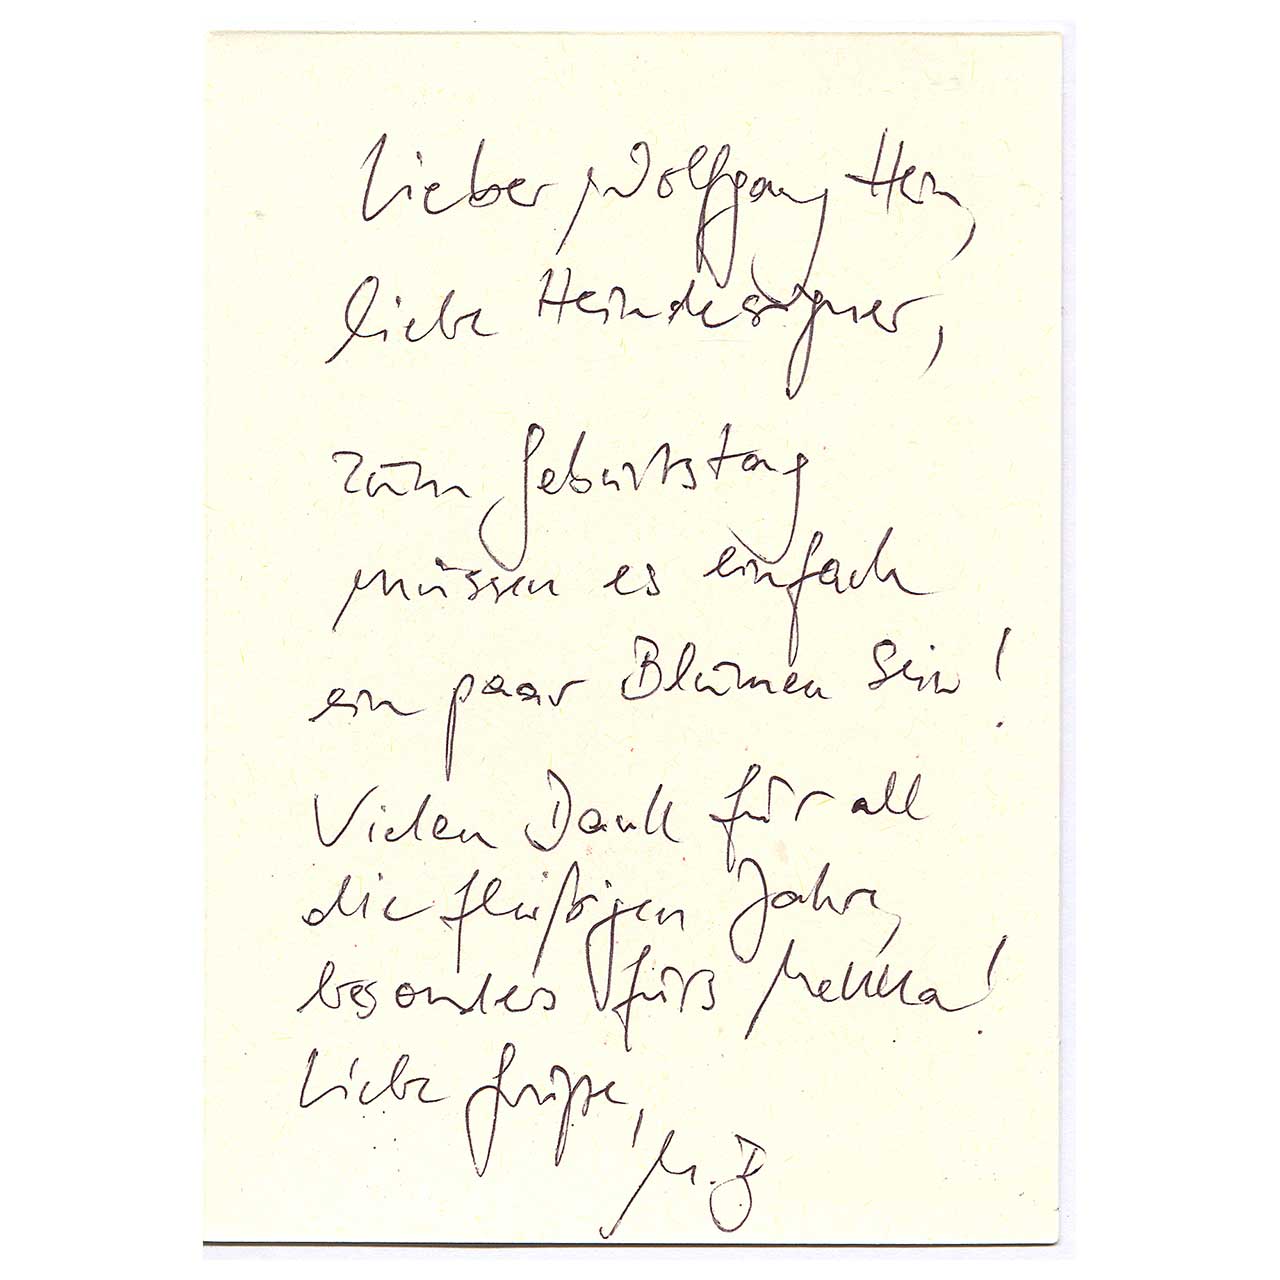 Lieber Wolfgang Hein,
liebe Heindesigner,
zum Geburtstag
müssen es einfach
ein paar Blumen sein!
Vielen Dank für all
die fleißigen Jahre,
besonders fürs Mekka!
Liebe Grüße,
M.